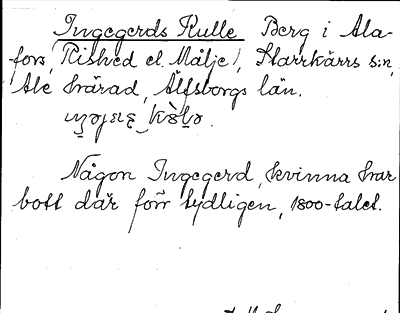 Ingegerds Kulle Berg i Ala-
fors, Rished el. Målje), Starrkärrs s:n,
Ale härad, Älfsborgs län.
Någon Ingegerd, kvinna har
bott där förr tydligen, 1800-talet.